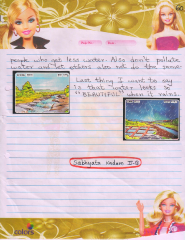 people who get less water. Also don't pollute
water and let others also not do the same.
Last thing I want to say
is that water looks so
"BEAUTIFUL" when it rains.
Sabhyata Kadam II-D
colors